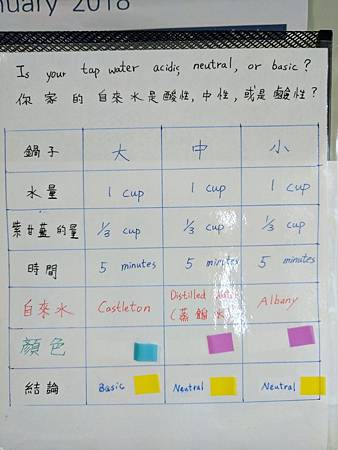 nuary 2018
Is your tap water acidic, neutral, or basic?
你家的自來水是酸性,中性,或是鹼性?
鍋子 大 中 小
水量 1 cup 1 cup 1 cup
紫甘藍的量 1/3 cup 1/3 cup 1/3 cup
時間 5 minutes 5 minutes 5 minutes
自來水 Castleton Distilled Albany
(蒸餾水)
顏色
結論 Basic Neutral Neutral